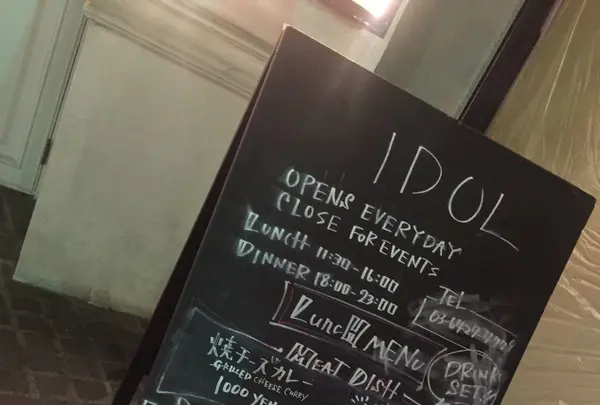 IDOL
OPENS EVERYDAY
CLOSE FOR EVENTS
LUNCH 11:30-16:00
DINNER 18:00-23:00
TEL
Lunch MENU
MEAT DISH
DRINK
SET
焼チーズカレー
GRILLED CHEESE CURRY
1000 YEN